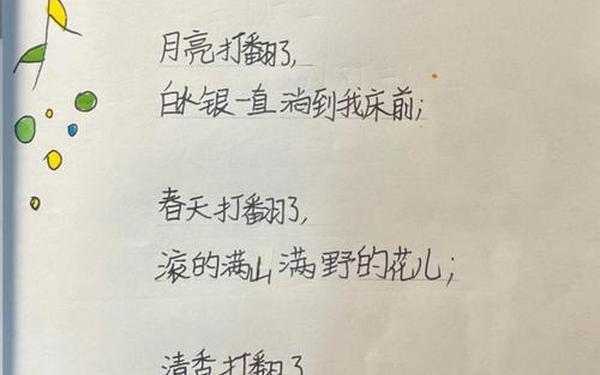 月亮打翻了,
白水银一直淌到我床前;
春天打翻了,
滚的满山满野的花儿;
清香打翻了